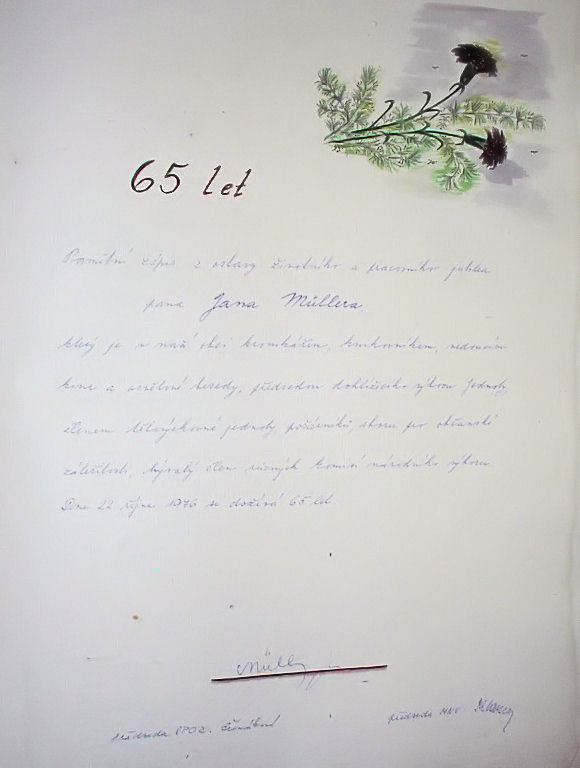 65 let
Pamětní zápis z oslavy životního a pracovního jubilea
pana Jana Müllera,
který je v naší obci kronikářem, knihovníkem, vedoucím
kina a osvětové besedy, předsedou dohlížecího výboru Jednoty,
členem tělovýchovné jednoty, požárníků, sboru pro občanské
záležitosti, bývalý člen různých komisí národního výboru.
Dne 22. října 1976 se dožívá 65 let.
Müller
předseda
předseda MNV